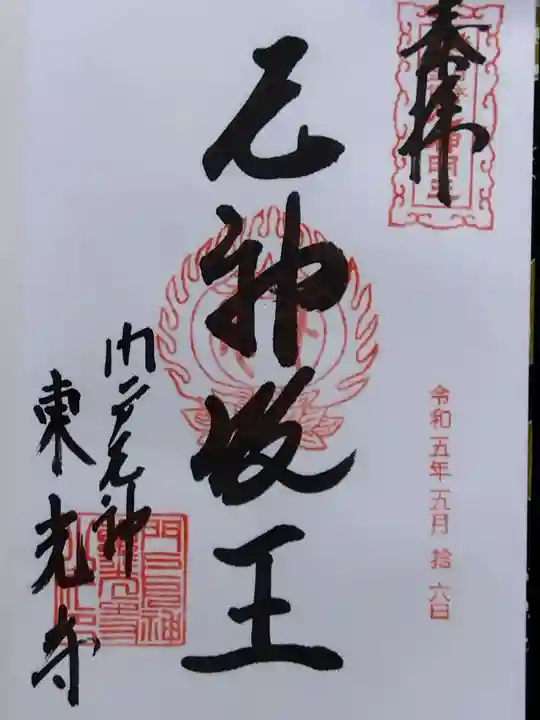 奉拝
令和五年五月拾六日
厄神明王
门戸厄神
東光寺